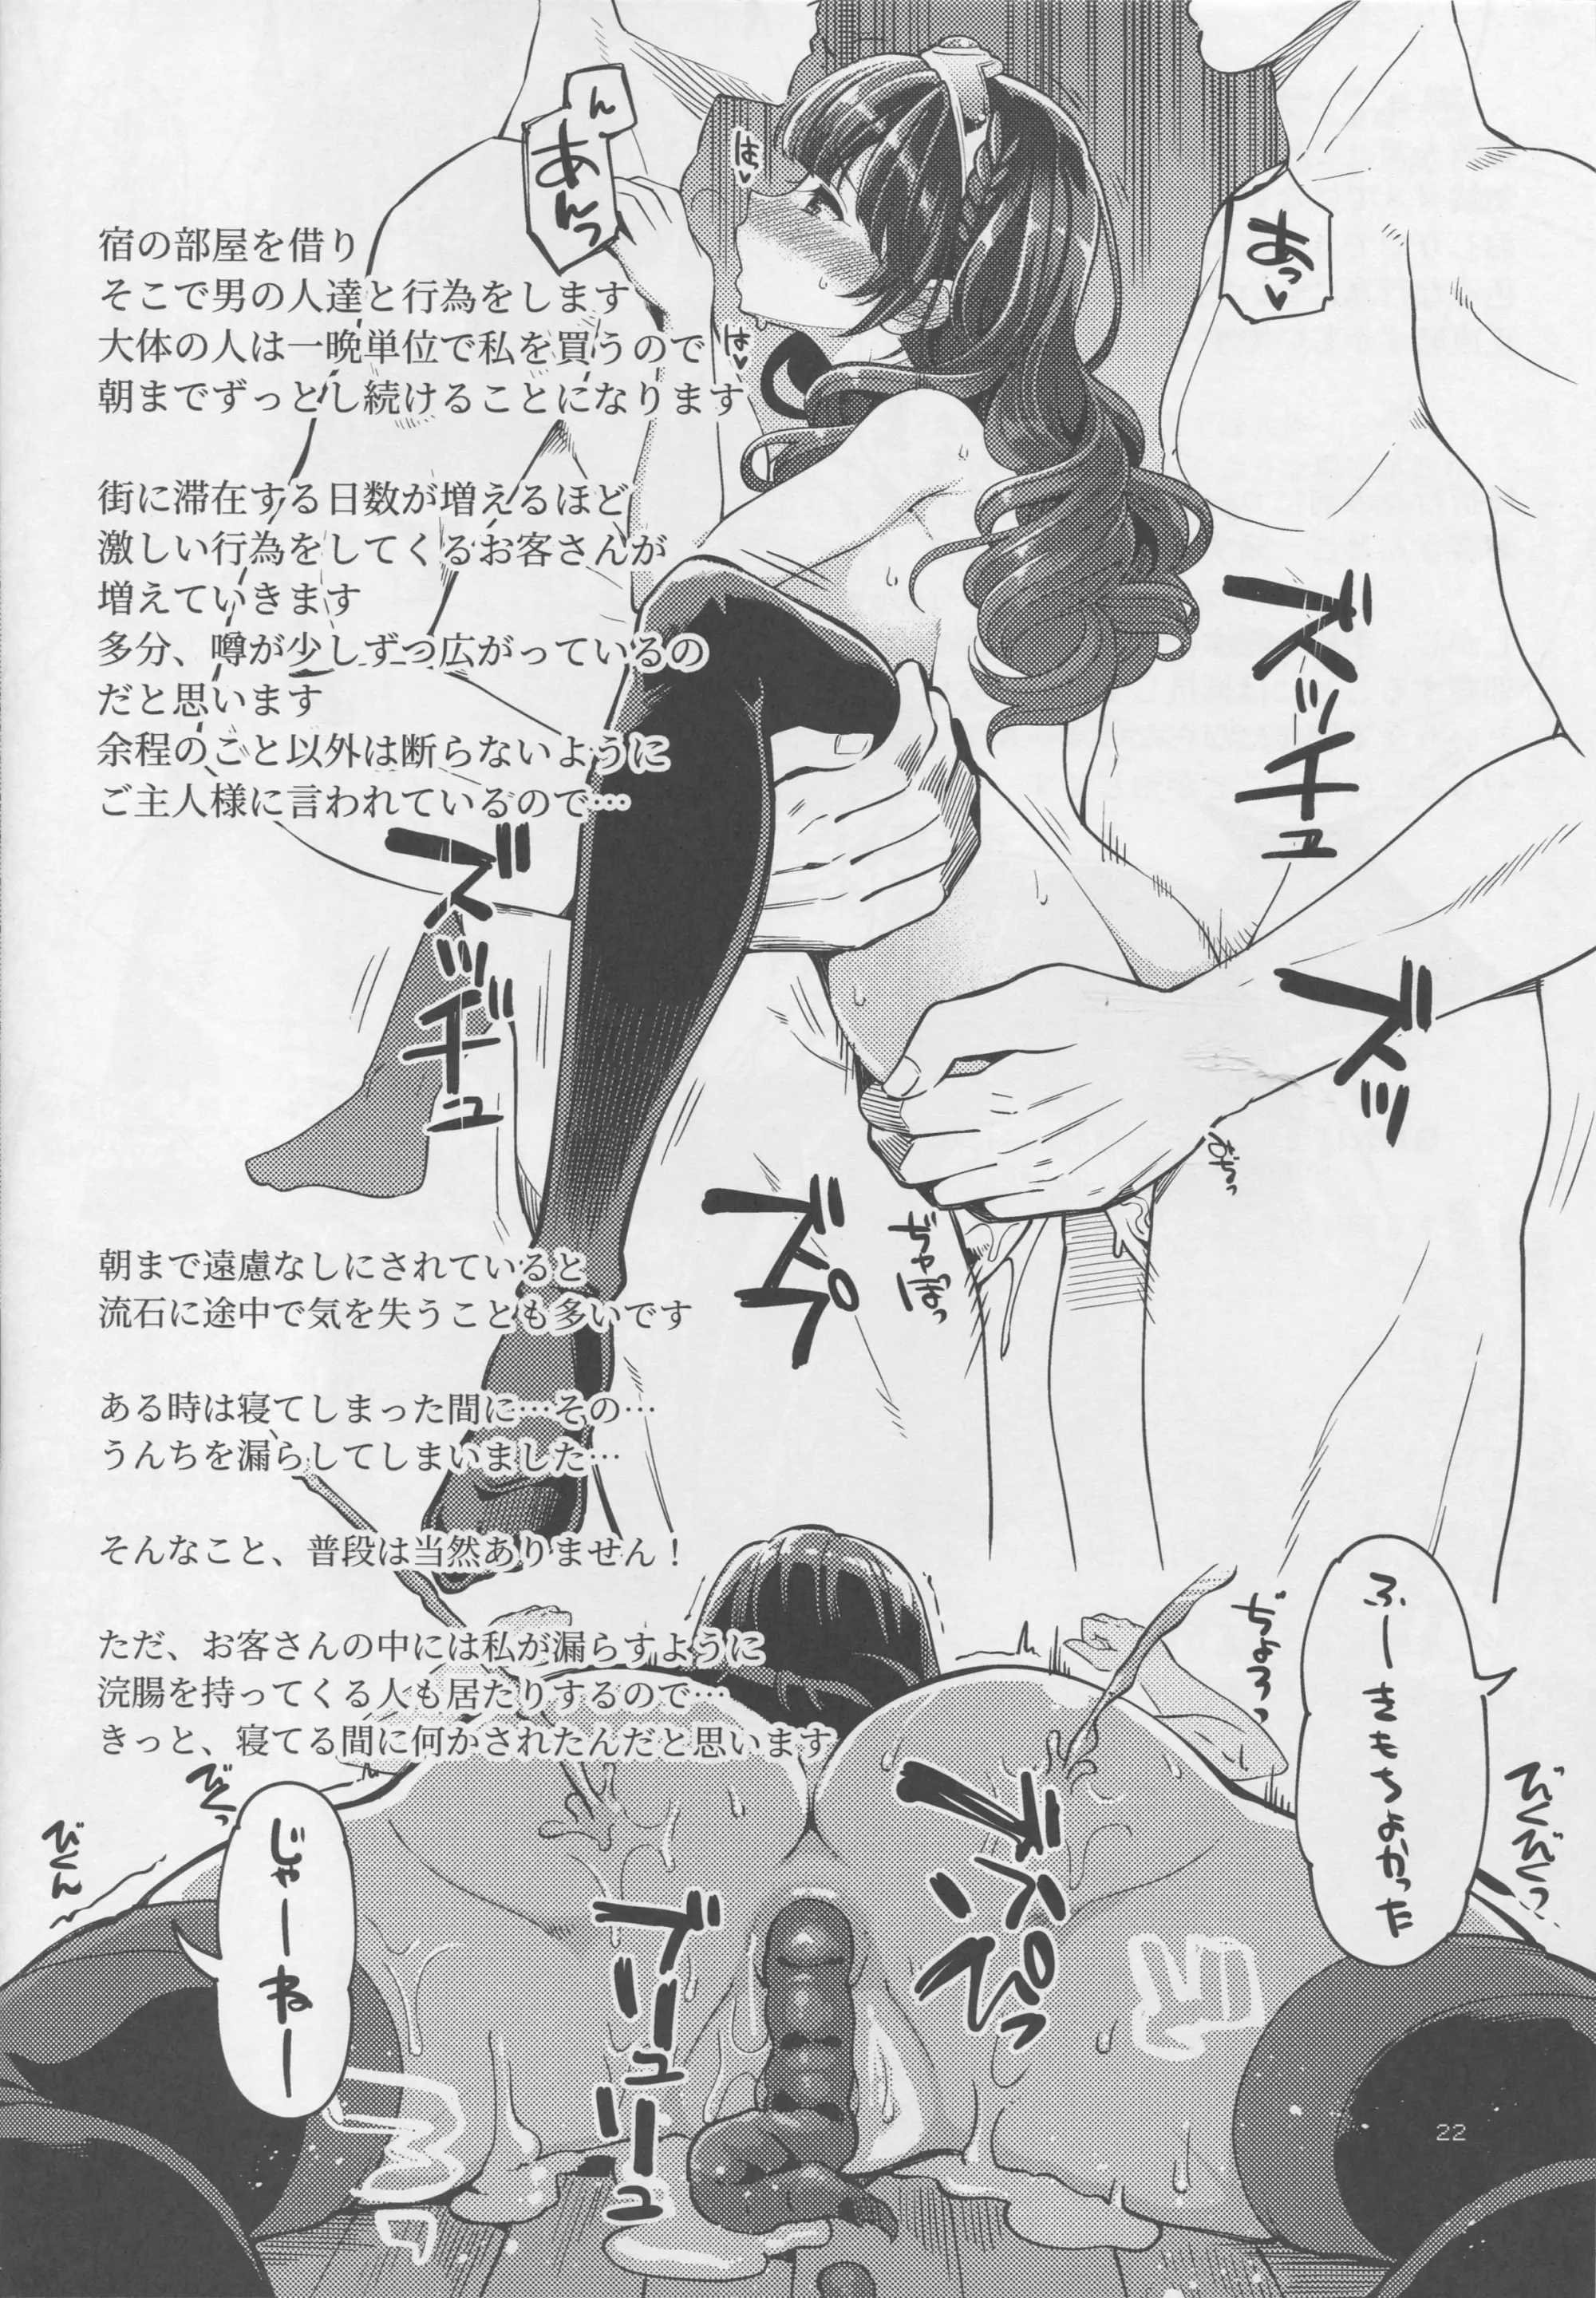 ん
あんっ
はっ♥
あっ♥
は♥
宿の部屋を借り
そこで男の人達と行為をします
大体の人は一晩単位で私を買うので
朝までずっとし続けることになります
街に滞在する日数が増えるほど
激しい行為をしてくるお客さんが
増えていきます
多分、噂が少しずつ広がっているの
だと思います
余程のこと以外は断らないように
ご主人様に言われているので…
ズッチュ
ズッヂュ
ズッ
ズパ
ぢゅぽっ
朝まで遠慮なしにされていると
流石に途中で気を失うことも多いです
ある時は寝てしまった間に…その…
うんちを漏らしてしまいました…
そんなこと、普段は当然ありません！
ただ、お客さんの中には私が漏らすように
浣腸を持ってくる人も居たりするので…
きっと、寝てる間に何かされたんだと思います
ふーきもちよかった
じゃーねー
ぢょろっ
びくっ
びくん
びくびくっ
ブリュリュ
22